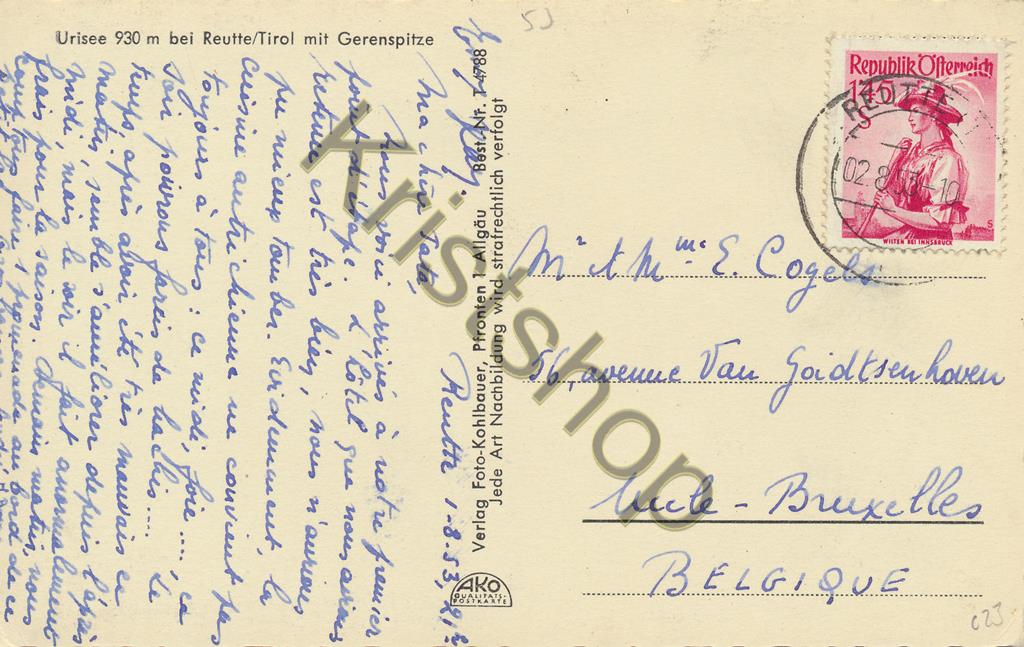 Urisee 930 m bei Reutte/Tirol mit Gerenspitze
Reutte 1.8.53,
Ma chère
Nous voici arrivés à notre premier
point d'étape. L'hôtel que nous avions
retenu est très bien, nous n'aurions
pu mieux tomber. Evidemment, la
cuisine autrichienne ne convient pas
toujours à tous : ce midi, foie...., ce
soir poivrons farcis de hachis.... Le
temps après avoir été très mauvais ce
matin, semble s'améliorer depuis l'après
midi, mais le soir il fait anormalement
frais pour la saison. Demain matin, nous
comptons faire 1 promenade au bord de ce
Verlag Foto-Kohlbauer, Pfronten 1 Allgäu Best.-Nr. T 4788
Jede Art Nachbildung wird strafrechtlich verfolgt
AKO
QUALITÄTS-
POSTKARTE
53
Republik Österreich
1.45
S
WILTEN BEI INNSBRUCK
REUTTE
02.8.53-10
Mr & Mme E. Cogels
56, avenue Van Goidtsenhoven
Uccle - Bruxelles
BELGIQUE
c23
Kristshop